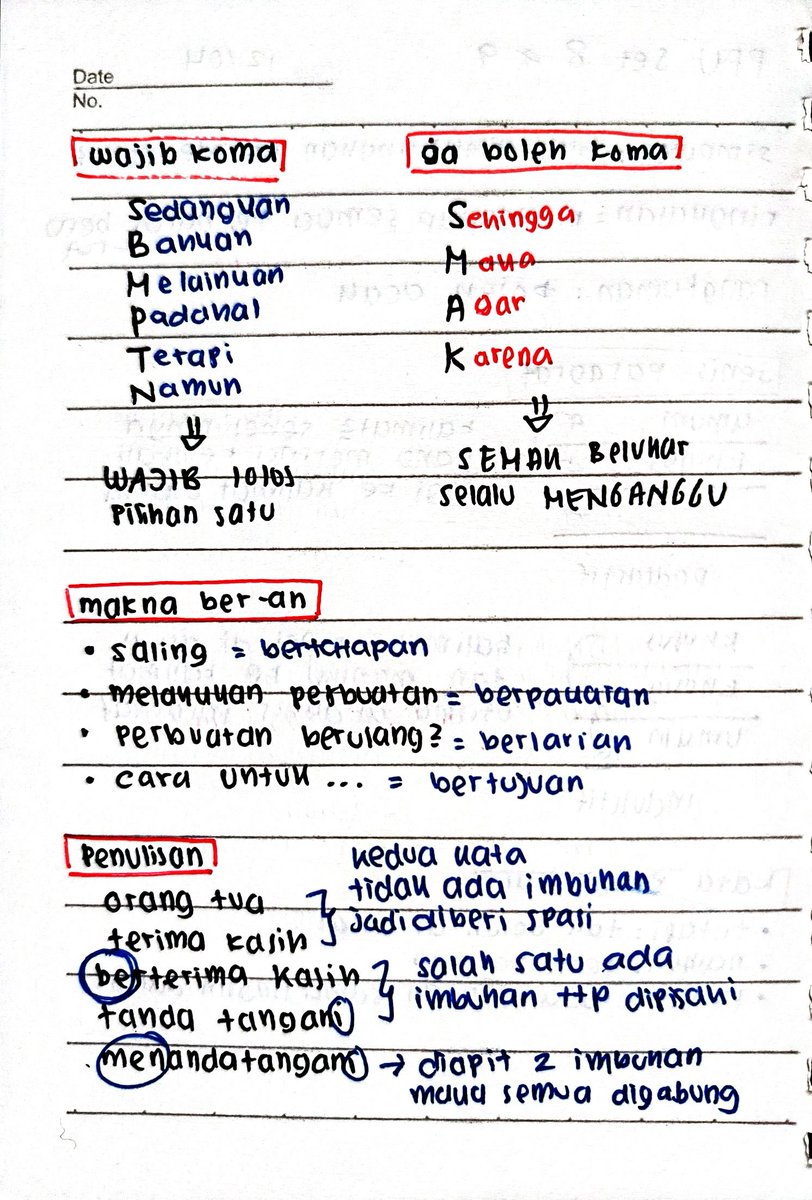 Date
No.
wajib koma
ga boleh koma
Sedangkan
Bahkan
Melainkan
Padahal
Tetapi
Namun
WAJIB lolos
Pilihan satu
Sehingga
Maka
Agar
Karena
SEMAK Belukar
selalu MENGANGGU
makna ber-an
• saling = bertatapan
• melakukan perbuatan = berpakaian
• perbuatan berulang? = berlarian
• cara untuk ... = bertujuan
Penulisan
orang tua
terima kasih
kedua kata
tidak ada imbuhan
jadi diberi spasi
berterima kasih
tanda tangani
salah satu ada
imbuhan ttp dipisah
menandatangani → diapit 2 imbuhan
maka semua digabung